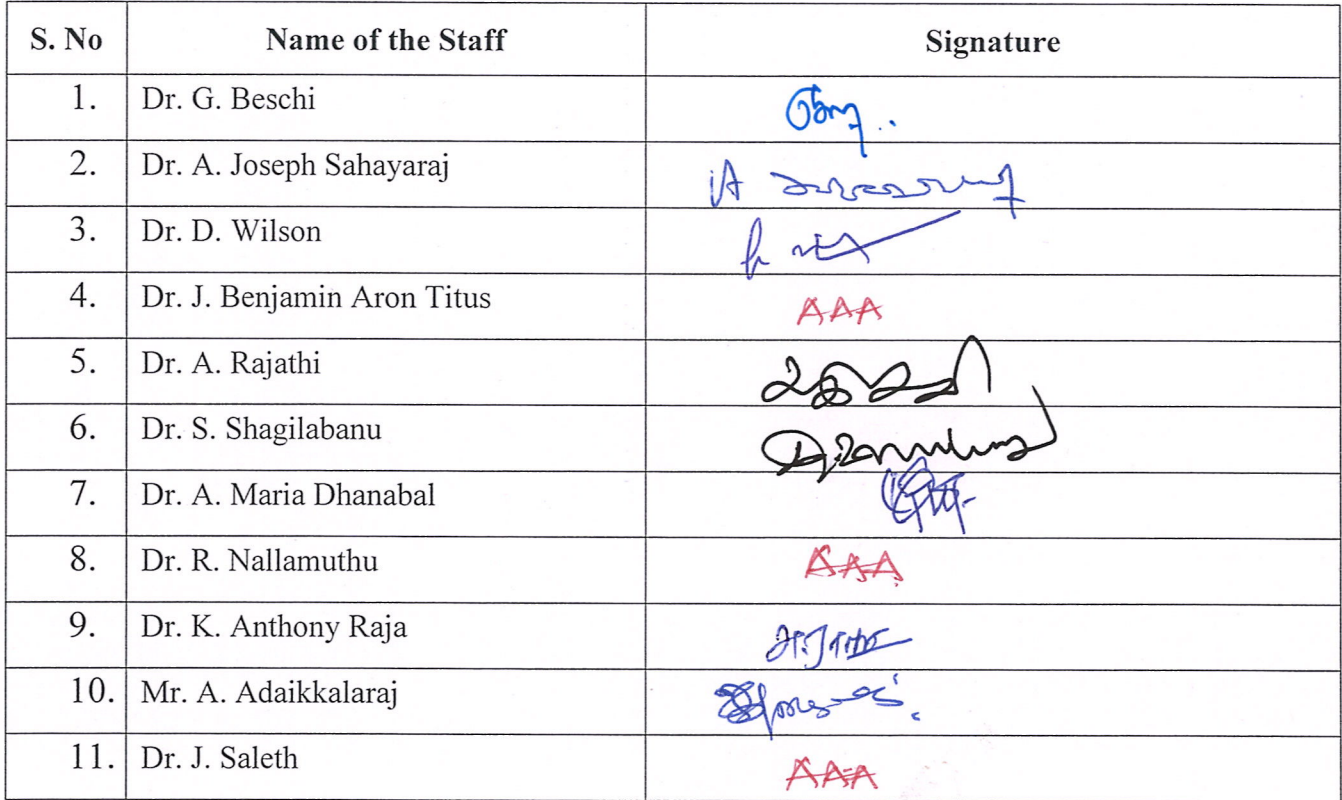 S. No Name of the Staff Signature
1. Dr. G. Beschi
2. Dr. A. Joseph Sahayaraj
3. Dr. D. Wilson
4. Dr. J. Benjamin Aron Titus AAA
5. Dr. A. Rajathi
6. Dr. S. Shagilabanu
7. Dr. A. Maria Dhanabal
8. Dr. R. Nallamuthu AAA
9. Dr. K. Anthony Raja
10. Mr. A. Adaikkalaraj
11. Dr. J. Saleth AAA